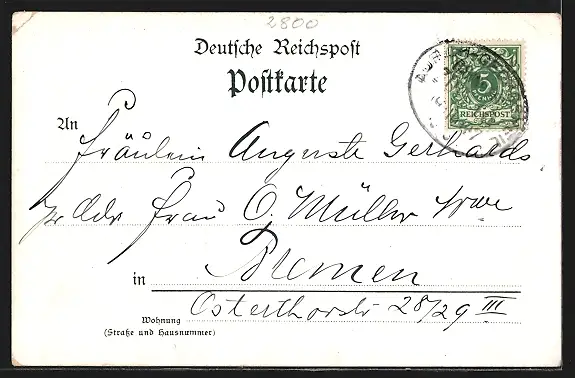 2800
Deutsche Reichspost
Postkarte
5
PFENNIG
REICHSPOST
An Fräulein Auguste Gerhards
pr Adr Frau O. Müller Wwe
in Bremen
Osterthorstr 28/29 III
Wohnung
(Straße und Hausnummer)